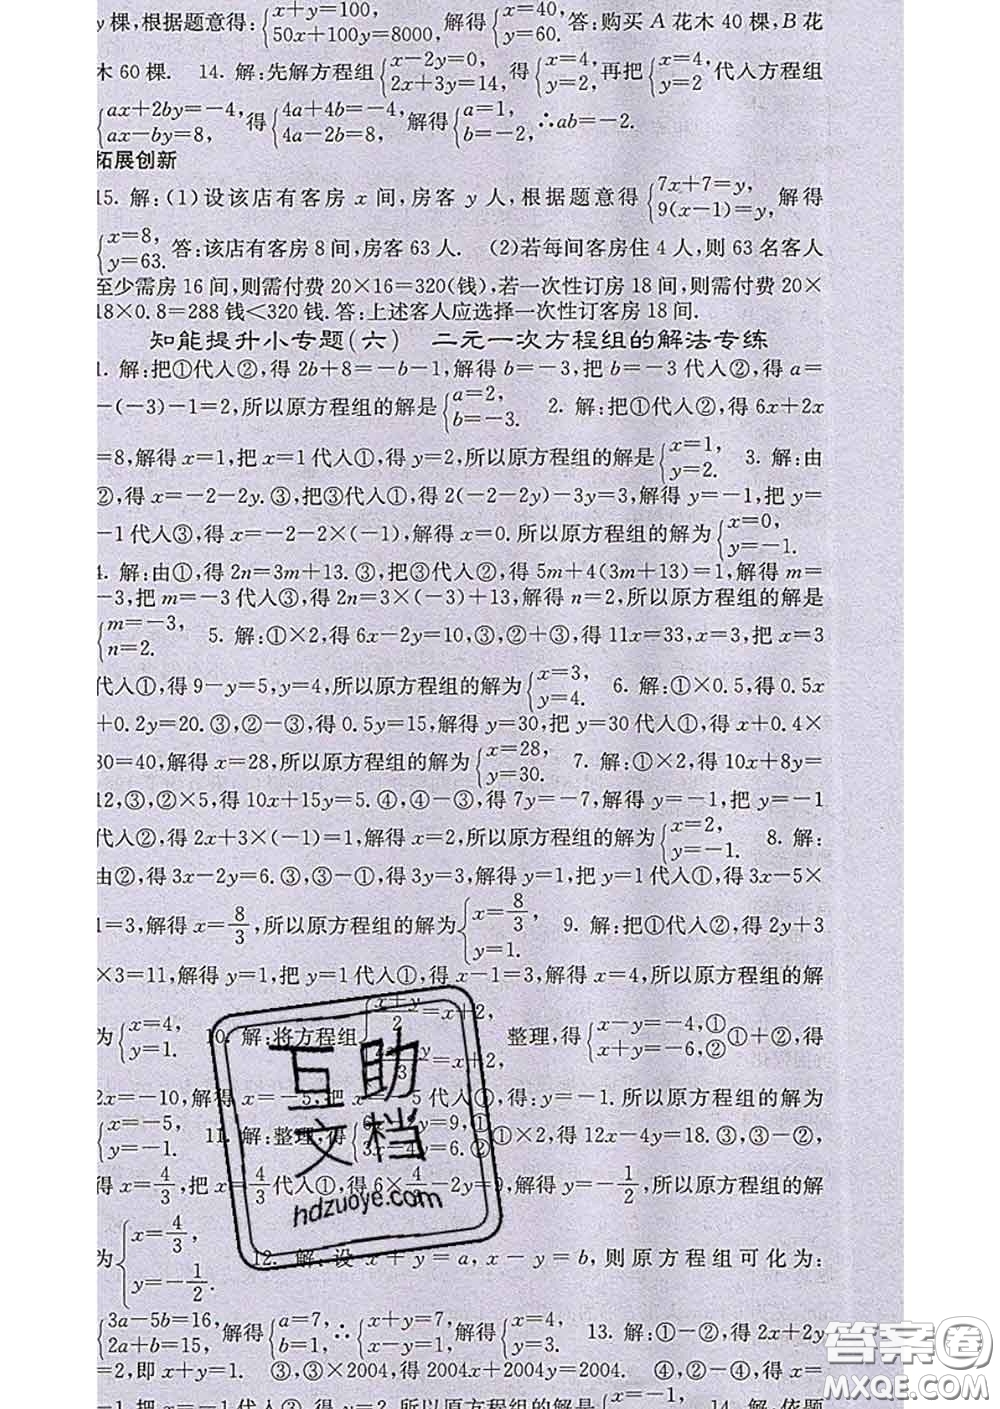 y棵,根据题意得:{x+y=100, 50x+100y=8000, 解得{x=40, y=60. 答:购买 A 花木 40 棵,B 花
木 60 棵. 14. 解:先解方程组{x-2y=0, 2x+3y=14, 得{x=4, y=2, 再把{x=4, y=2 代入方程组
{ax+2by=-4, ax-by=8, 得{4a+4b=-4, 4a-2b=8, 解得{a=1, b=-2, ∴ab=-2.
拓展创新
15. 解:(1)设该店有客房 x 间,房客 y 人,根据题意得{7x+7=y, 9(x-1)=y, 解得
{x=8, y=63. 答:该店有客房 8 间,房客 63 人. (2)若每间客房住 4 人,则 63 名客人
至少需房 16 间,则需付费 20×16=320(钱),若一次性订房 18 间,则需付费 20×
18×0.8=288 钱<320 钱. 答:上述客人应选择一次性订客房 18 间.
知能提升小专题(六) 二元一次方程组的解法专练
1. 解:把①代入②,得 2b+8=-b-1,解得 b=-3,把 b=-3 代入①,得 a=
-(-3)-1=2,所以原方程组的解是{a=2, b=-3. 2. 解:把①代入②,得 6x+2x
=8,解得 x=1,把 x=1 代入①,得 y=2,所以原方程组的解是{x=1, y=2. 3. 解:由
②,得 x=-2-2y. ③,把③代入①,得 2(-2-2y)-3y=3,解得 y=-1,把 y=
-1 代入③,得 x=-2-2×(-1),解得 x=0. 所以原方程组的解为{x=0, y=-1.
4. 解:由①,得 2n=3m+13. ③,把③代入②,得 5m+4(3m+13)=1,解得 m=
-3,把 m=-3 代入③,得 2n=3×(-3)+13,解得 n=2,所以原方程组的解是
{m=-3, n=2. 5. 解:①×2,得 6x-2y=10,③,②+③,得 11x=33,x=3,把 x=3
代入①,得 9-y=5,y=4,所以原方程组的解为{x=3, y=4. 6. 解:①×0.5,得 0.5x
+0.2y=20. ③,②-③,得 0.5y=15,解得 y=30,把 y=30 代入①,得 x+0.4×
30=40,解得 x=28,所以原方程组的解为{x=28, y=30. 7. 解:①×2,得 10x+8y=
12,③,②×5,得 10x+15y=5. ④,④-③,得 7y=-7,解得 y=-1,把 y=-1
代入②,得 2x+3×(-1)=1,解得 x=2,所以原方程组的解为{x=2, y=-1. 8. 解:
由②,得 3x-2y=6. ③,③-①,得 3y=3,解得 y=1,把 y=1 代入①,得 3x-5×
1=3,解得 x=8/3,所以原方程组的解为{x=8/3, y=1. 9. 解:把①代入②,得 2y+3
×3=11,解得 y=1,把 y=1 代入①,得 x-1=3,解得 x=4,所以原方程组的解
为{x=4, y=1. 10. 解:将方程组{x+y/2=x+2, y/3=x+2, 整理,得{x-y=-4,① x+y=-6,② ①+②,得
2x=-10,解得 x=-5,把 x=-5 代入①,得:y=-1. 所以原方程组的解为
{x=-5, y=-1. 11. 解:整理,得{6x-2y=9,① 3x-4y=6.② ①×2,得 12x-4y=18. ③,③-②,
得 x=4/3,把 x=4/3 代入①,得 6×4/3-2y=9,解得 y=-1/2,所以原方程组的解
为{x=4/3, y=-1/2. 12. 解:设 x+y=a,x-y=b,则原方程组可化为:
{3a-5b=16, 2a+b=15, 解得{a=7, b=1, ∴{x+y=7, x-y=1, 解得{x=4, y=3. 13. 解:①-②,得 2x+2y
=2,即 x+y=1. ③,③×2004,得 2004x+2004y=2004. ④,②-④,得 x=
-1,把 x=-1 代入③,得 y=2. 所以原方程组的解为{x=-1, 14. 解:依题
互助
文档
hdzuoye.com
答案圈
MXQE.COM